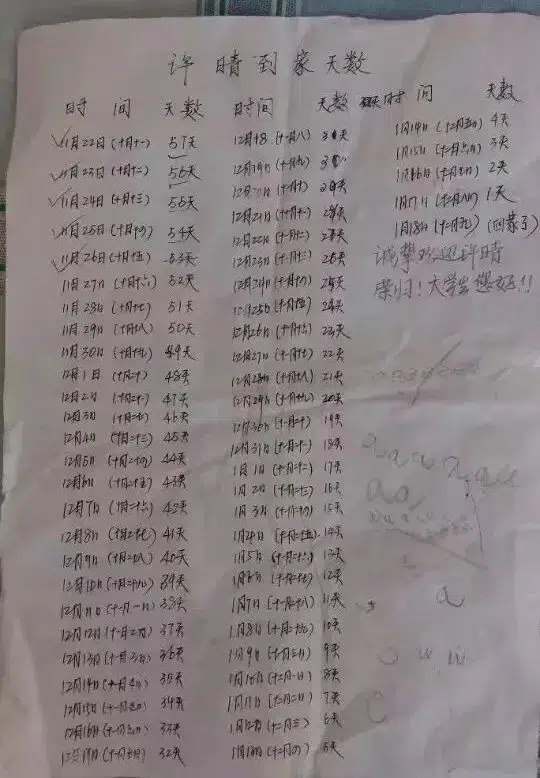 许晴到家天数
时 间 天数
11月22日(十月十一) 57天
11月23日(十月十二) 56天
11月24日(十月十三) 55天
11月25日(十月十四) 54天
11月26日(十月十五) 53天
11月27日(十月十六) 52天
11月28日(十月十七) 51天
11月29日(十月十八) 50天
11月30日(十月十九) 49天
12月1日(十月二十) 48天
12月2日(十月二十一) 47天
12月3日(十月二十二) 46天
12月4日(十月二十三) 45天
12月5日(十月二十四) 44天
12月6日(十月二十五) 43天
12月7日(十月二十六) 42天
12月8日(十月二十七) 41天
12月9日(十月二十八) 40天
12月10日(十月二十九) 39天
12月11日(十一月一日) 38天
12月12日(十一月二日) 37天
12月13日(十一月三日) 36天
12月14日(十一月四日) 35天
12月15日(十一月五日) 34天
12月16日(十一月六日) 33天
12月17日(十一月七日) 32天
时间 天数
12月18(十一月八) 31天
12月19日(十一月九) 30天
12月20日(十一月十) 29天
12月21日(十一月十一) 28天
12月22日(十一月十二) 27天
12月23日(十一月十三) 26天
12月24日(十一月十四) 25天
12月25日(十一月十五) 24天
12月26日(十一月十六) 23天
12月27日(十一月十七) 22天
12月28日(十一月十八) 21天
12月29日(十一月十九) 20天
12月30日(十一月二十) 19天
12月31日(十一月二十一) 18天
1月1日(十一月二十二) 17天
1月2日(十一月二十三) 16天
1月3日(十一月二十四) 15天
1月4日(十一月二十五) 14天
1月5日(十一月二十六) 13天
1月6日(十一月二十七) 12天
1月7日(十一月二十八) 11天
1月8日(十一月二十九) 10天
1月9日(十一月三十日) 9天
1月10日(十二月一日) 8天
1月11日(十二月二日) 7天
1月12日(十二月三) 6天
1月13日(十二月四) 5天
时 间 天数
1月14日(十二月五) 4天
1月15日(十二月六) 3天
1月16日(十二月七) 2天
1月17日(十二月八) 1天
1月18日(十二月九) (回家了)
诚挚欢迎许晴
荣归!大学生您好!!